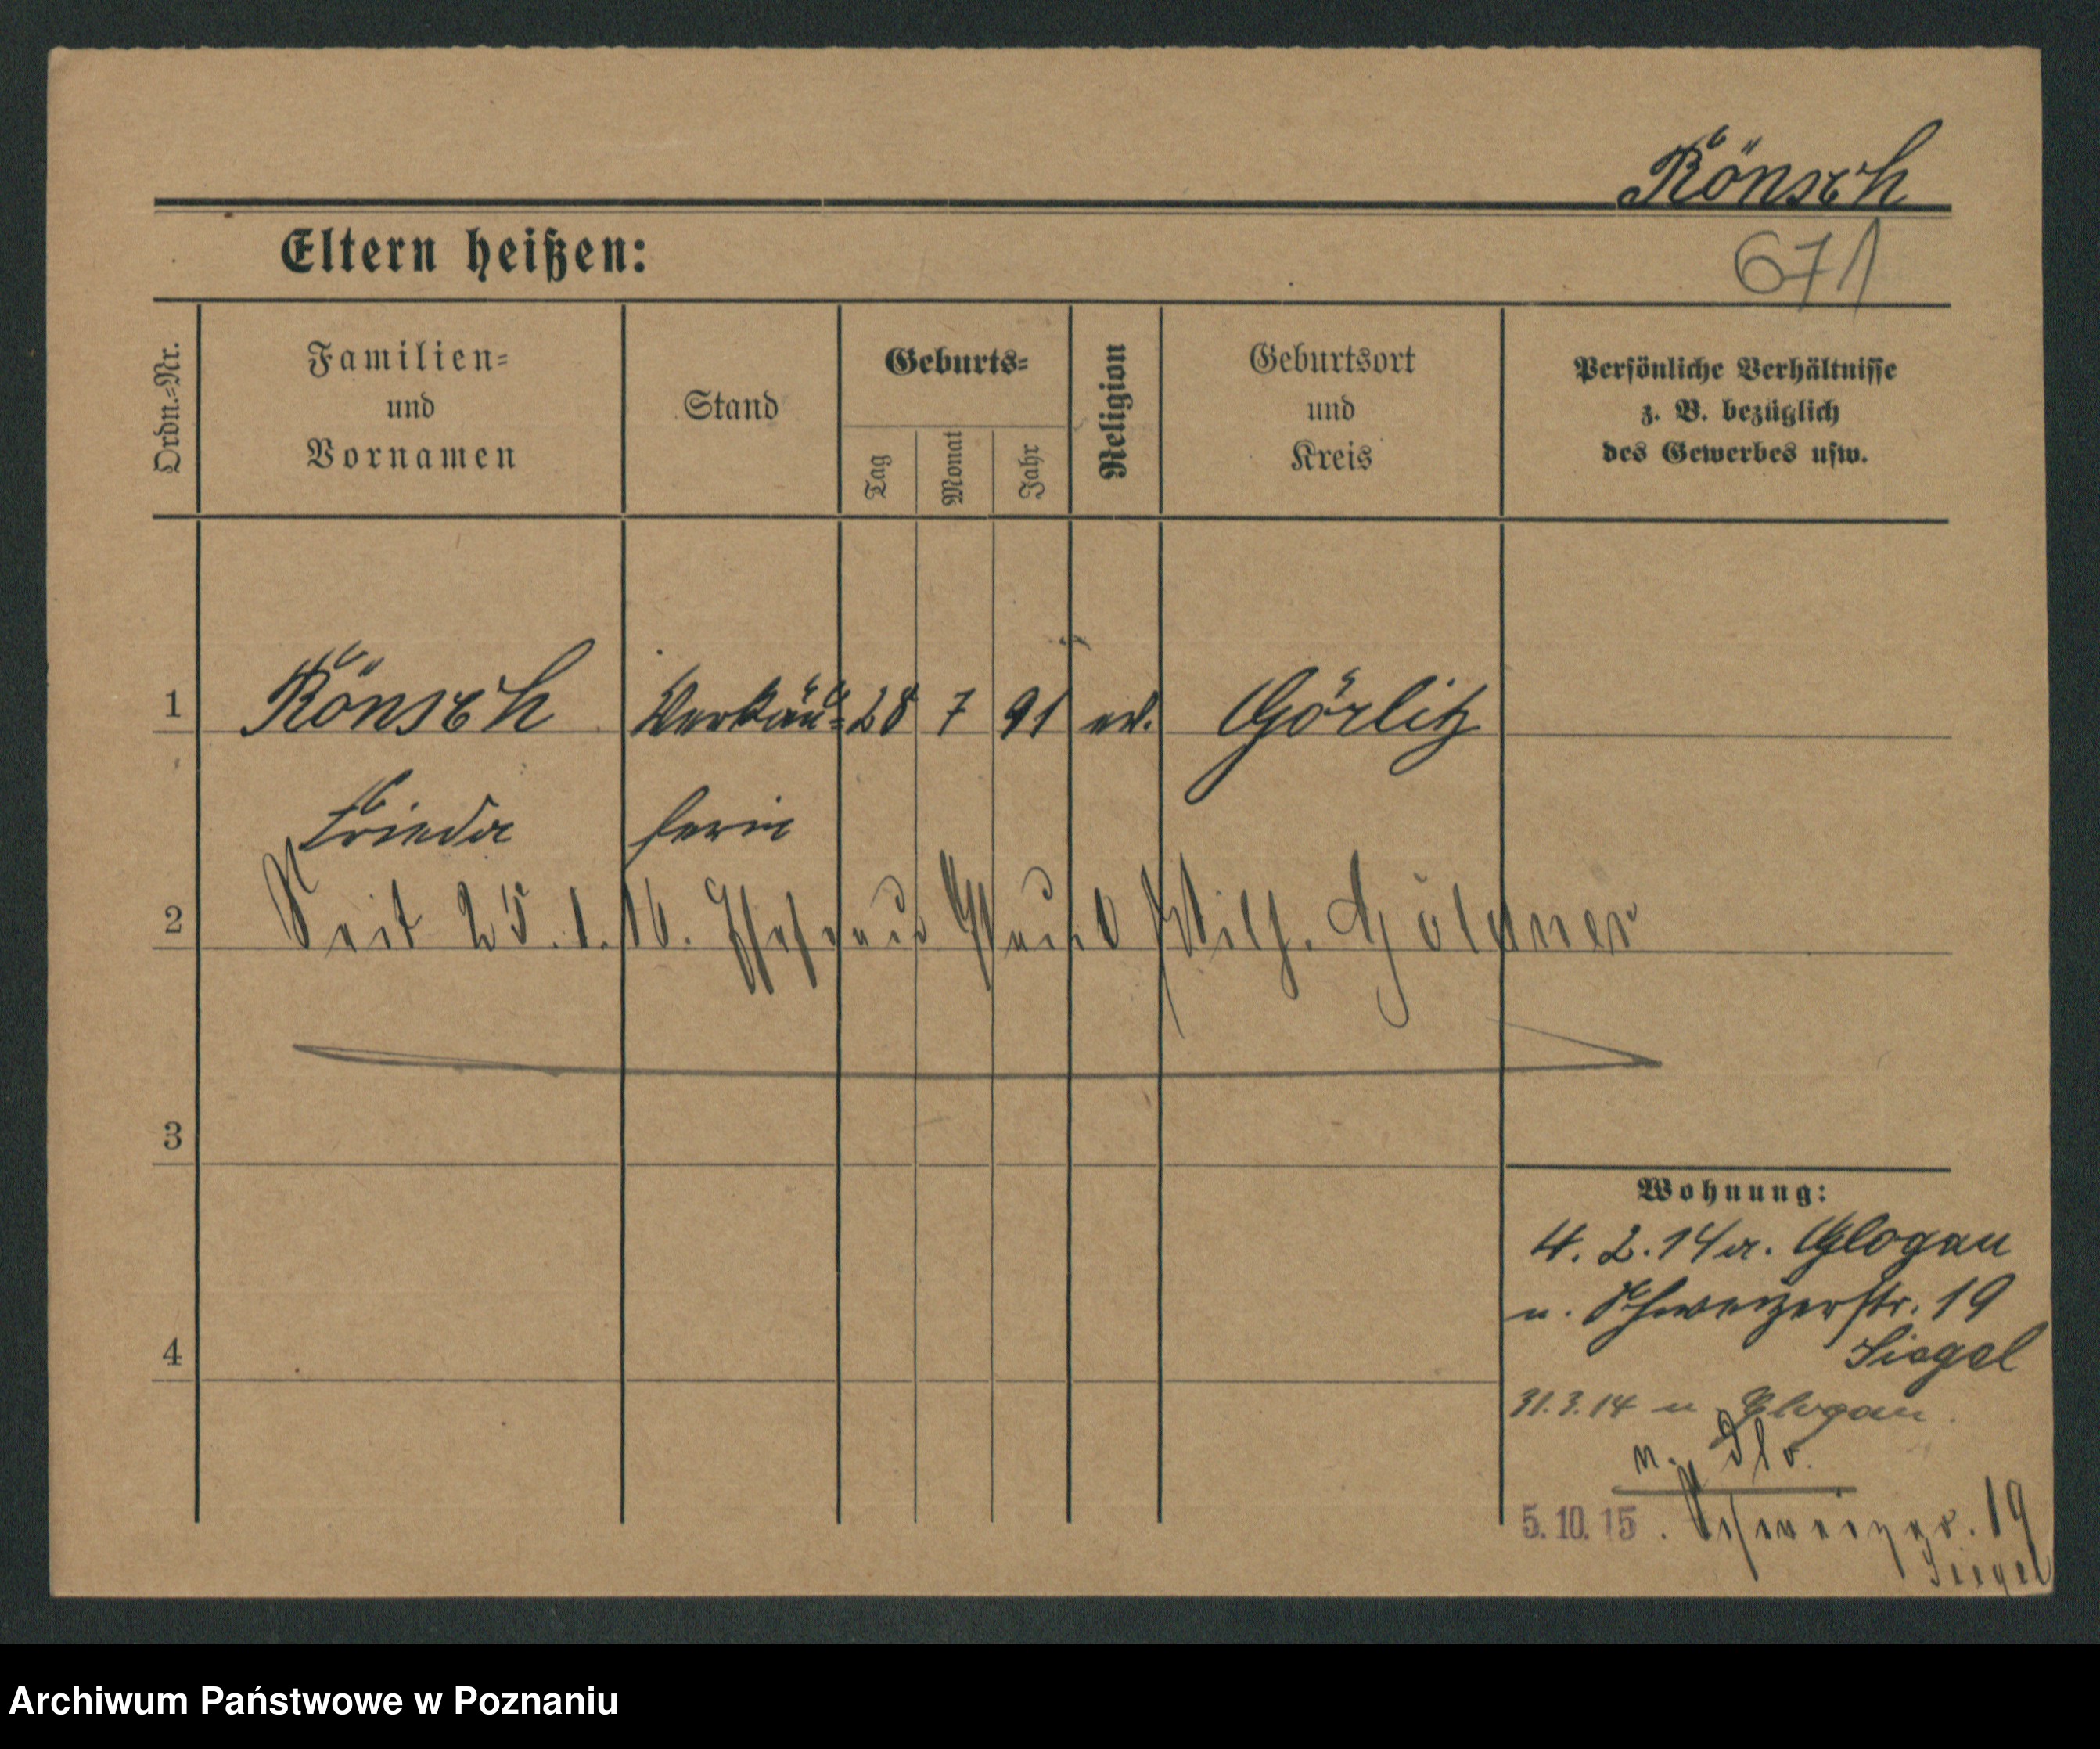 Rönsch
Eltern heißen:
671
Ordn.=Nr.
Familien=
und
Vornamen
Stand
Geburts=
Tag
Monat
Jahr
Religion
Geburtsort
und
Kreis
Persönliche Verhältnisse
z. B. bezüglich
des Gewerbes usw.
1 Rönsch Verkäu= 28 7 91 ev. Görlitz
Frieda ferin
2 Seit 25.1.16. Ehefrau Wilh. Göldner
3
4
Wohnung:
4. 2. 14 a. Glogau
n. Schweizerstr. 19
Siegel
31.3.14 n. Glogau.
n. Glo.
5. 10. 15. Schweizer. 19
Siegel
Archiwum Państwowe w Poznaniu